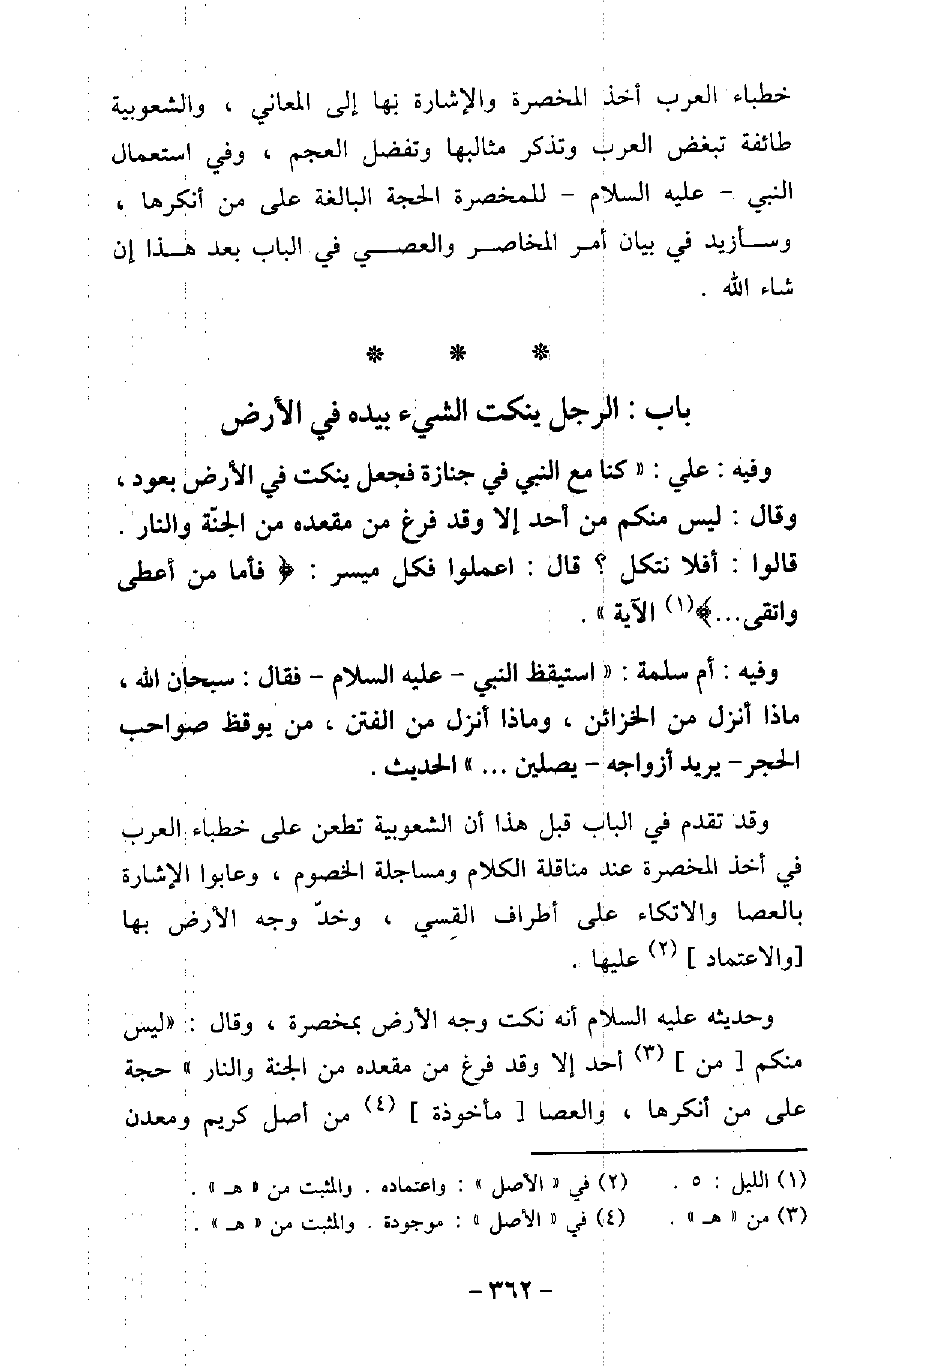 خطباء العرب أخذ المخصرة والإشارة بها إلى المعاني ، والشعوبية
طائفة تبغض العرب وتذكر مثالبها وتفضل العجم ، وفي استعمال
النبي - عليه السلام - للمخصرة الحجة البالغة على من أنكرها ،
وسأزيد في بيان أمر المخاصر والعصي في الباب بعد هذا إن
شاء الله .
* * *
باب : الرجل ينكت الشيء بيده في الأرض
وفيه : علي : « كنا مع النبي في جنازة فجعل ينكت في الأرض بعود ،
وقال : ليس منكم من أحد إلا وقد فرغ من مقعده من الجنّة والنار .
قالوا : أفلا نتكل ؟ قال : اعملوا فكل ميسر : ﴿ فأما من أعطى
واتقى...﴾(١) الآية » .
وفيه : أم سلمة : « استيقظ النبي - عليه السلام - فقال : سبحان الله ،
ماذا أنزل من الخزائن ، وماذا أنزل من الفتن ، من يوقظ صواحب
الحجر- يريد أزواجه - يصلين ... » الحديث .
وقد تقدم في الباب قبل هذا أن الشعوبية تطعن على خطباء العرب
في أخذ المخصرة عند مناقلة الكلام ومساجلة الخصوم ، وعابوا الإشارة
بالعصا والاتكاء على أطراف القِسي ، وخدّ وجه الأرض بها
[والاعتماد ] (٢) عليها .
وحديثه عليه السلام أنه نكت وجه الأرض بمخصرة ، وقال : «ليس
منكم [ من ] (٣) أحد إلا وقد فرغ من مقعده من الجنة والنار » حجة
على من أنكرها ، والعصا [ مأخوذة ] (٤) من أصل كريم ومعدن
(١) الليل : ٥ . (٢) في « الأصل » : واعتماده . والمثبت من « هـ » .
(٣) من « هـ » . (٤) في « الأصل » : موجودة . والمثبت من « هـ » .
- ٣٦٢ -